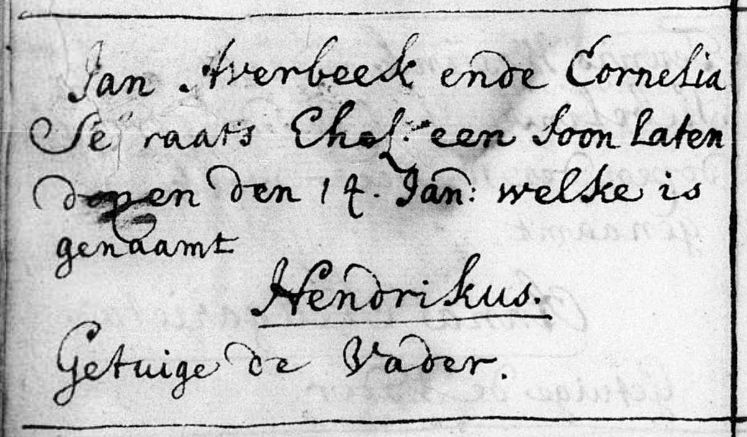 Jan Averbeek ende Cornelia
Se raats Ehel: een Soon laten
dopen den 14. Jan: welke is
genaamt
Hendrikus.
Getuige de Vader.